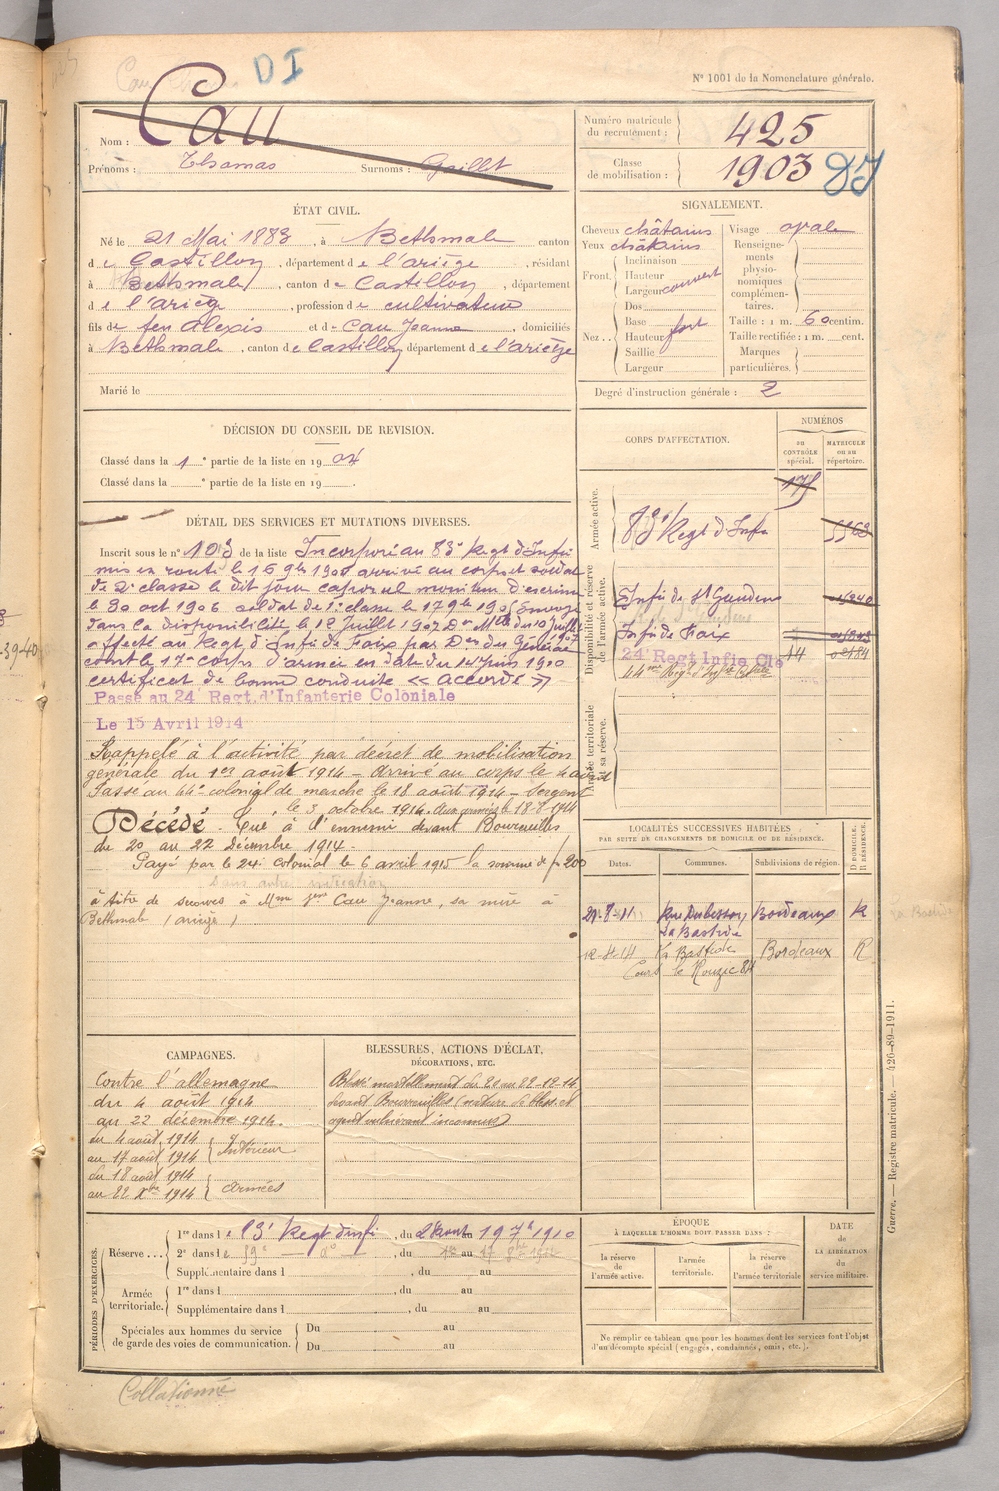 DI
N° 1001 de la Nomenclature générale.
Nom : Cau
Prénoms : Thomas Surnoms : Guillot
Numéro matricule du recrutement : 425
Classe de mobilisation : 1903
ÉTAT CIVIL.
Né le 21 Mai 1883, à Bethmale canton
de Castillon, département de l'ariège, résidant
à Bethmale, canton de Castillon, département
de l'ariège, profession de cultivateur
fils de feu Alexis et de Cau Jeanne, domiciliés
à Bethmale, canton de Castillon, département de l'ariège
Marié le
SIGNALEMENT.
Cheveux châtains
Yeux châtains
Front. Inclinaison
Hauteur
Largeur couvert
Nez. Dos
Base
Hauteur fort
Saillie
Largeur
Visage ovale
Renseignements physionomiques complémentaires.
Taille : 1 m. 60 centim.
Taille rectifiée : 1 m. cent.
Marques particulières.
Degré d'instruction générale : 2
DÉCISION DU CONSEIL DE REVISION.
Classé dans la 1e partie de la liste en 1904
Classé dans la e partie de la liste en 19 .
DÉTAIL DES SERVICES ET MUTATIONS DIVERSES.
Inscrit sous le n° 103 de la liste Incorporé au 83e Regt d'Infie
mis en route le 16 9bre arrivé au corps et soldat
de 2e classe le dit jour caporal moniteur d'escrime
le 30 oct 1906 soldat de 1e classe le 17 9bre Envoyé
dans la disponibilité le 12 Juillet 1907 du 10 juillet 1907
affecté au Regt d'Infie de Foix par Don du Général
comt le 17e corps d'armée en date du 14 juin 1910
certificat de bonne conduite « accordé »
Passé au 24e Regt. d'Infanterie Coloniale
Le 15 Avril 1914
Rappelé à l'activité par décret de mobilisation
générale du 1er août 1914 – arrivé au corps le 4 août
Passé au 44e colonial de marche le 18 août 1914 – Sergent
le 3 octobre 1914. Aux armées le 18-8-1914
Décédé. Tué à l'ennemi devant Boureuilles
du 20 au 22 Décembre 1914.
Payé par le 24e colonial le 6 avril 1915 la somme de fr 200
Sans autre indication
à titre de secours à Mme Cau Jeanne, sa mère à
Bethmale (ariège)
CORPS D'AFFECTATION.
NUMÉROS
au contrôle spécial.
matricule ou au répertoire.
Armée active.
83e Regt d'Infie
Disponibilité et réserve de l'armée active.
Infie de St Gaudens
Infie de Foix
24e Regt Infie Cle
44
44me Regt d'Infie Colle
Armée territoriale et sa réserve.
LOCALITÉS SUCCESSIVES HABITÉES
PAR SUITE DE CHANGEMENTS DE DOMICILE OU DE RÉSIDENCE.
Dates. Communes. Subdivisions de région. D. DOMICILE. R. RÉSIDENCE.
21-8-11 Rue Dubessan, La Bastide Bordeaux R
12-4-14 La Bastide Bordeaux R
Cours le Rouzic 84
CAMPAGNES.
Contre l'allemagne
du 4 août 1914
au 22 décembre 1914.
du 4 août 1914
au 17 août 1914 Intérieur
du 18 août 1914
au 22 Xbre 1914 Armées
BLESSURES, ACTIONS D'ÉCLAT,
DÉCORATIONS, ETC.
Blessé mortellement du 20 au 22-12-14
devant Boureuilles (nature de bless. et
agent vulnérant inconnus)
PÉRIODES D'EXERCICES.
Réserve... 1re dans le 83e Regt d'infie, du 24 au 1910
2e dans le 59e — do —, du au
Supplémentaire dans l , du au
Armée territoriale. 1re dans l , du au
Supplémentaire dans l , du au
Spéciales aux hommes du service de garde des voies de communication. Du au
Du au
ÉPOQUE
À LAQUELLE L'HOMME DOIT PASSER DANS :
la réserve de l'armée active. l'armée territoriale. la réserve de l'armée territoriale
DATE DE LA LIBÉRATION du service militaire.
Ne remplir ce tableau que pour les hommes dont les services font l'objet
d'un décompte spécial (engagés, condamnés, omis, etc.).
Guerre. — Registre matricule. — 426-89-1911.
Collationné